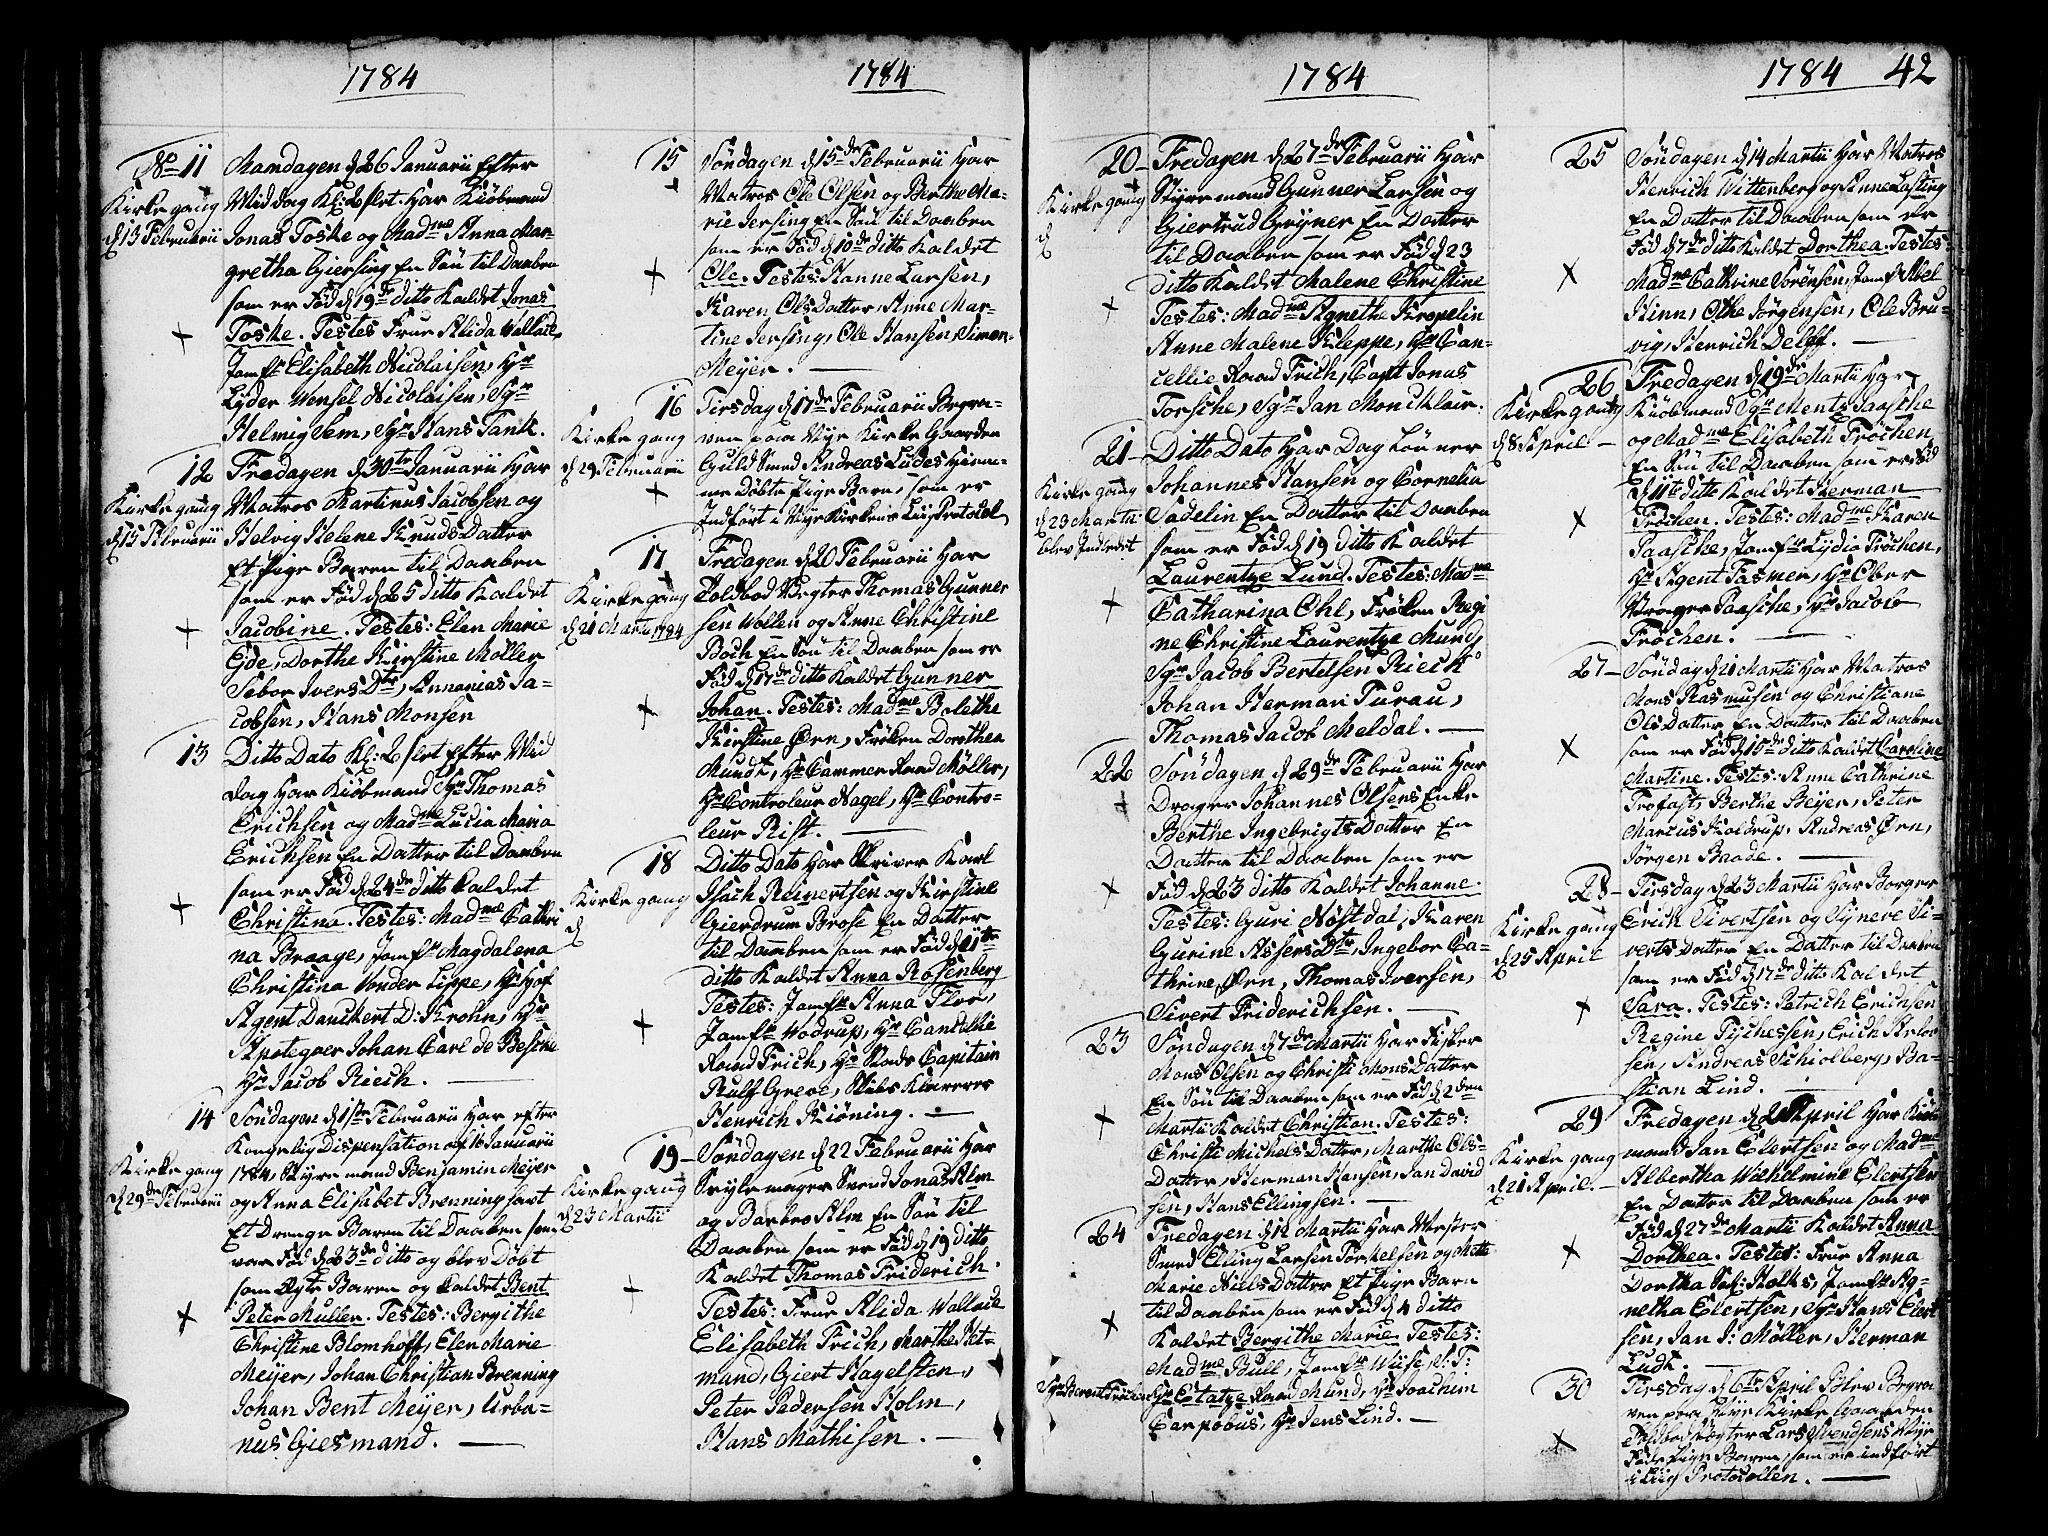 1784
No 11
Kirke gang
d 13 Februarii
Mandagen d 26 Januarii Efter
Middag Kl: 2 slet. Har Kiøbmand
Jonas Toske og Madme Anna Mar-
gretha Giersing En Søn til Daaben
som er Fød d 19de ditto Kaldet Jonas
Toske. Testes Frue Alida Wallace,
Jomfr Elisabeth Nicolaisen, Hr
Lyder Wensel Nicolaisen, Sgr
Helmig Sem, Sgr Hans Tank.
12
Kirke gang
d 15 Februarii
Fredagen d 30te Januarii Har
Matros Martinus Jacobsen og
Helvig Helene Knuds Datter
Et Pige Barn til Daaben
som er Fød d 25 ditto Kaldet
Jacobine. Testes: Elen Marie
Eide, Dorthe Kirstine Møller
Sebor Ivers Dtr, Annanias Ja-
cobsen, Hans Monsen
13
Ditto Dato Kl: 2 slet Efter Mid
dag Har Kiøbmand Sgr Thomas
Erichsen og Madme Lucia Maria
Erichsen En Datter til Daaben
som er Fød d 24de ditto Kaldet
Christina. Testes: Madme Cathri
na Braage, Jomfr Magdalena
Christina Vonder Lippe, Hr Hof
Agent Danckert D: Krohn, Hr
Apoteqver Johan Carl de Besche
Hr Jacob Riech.
14
Kirke gang
d 29de Februarii
Søndagen d 1ste Februarii Har efter
Kongelig Dispensation af 16 Januarii
1784, Styremand Benjamin Meyer
og Anna Elisabet Brenning havt
Et Drenge Barn til Daaben som
var Fød d 23de ditto og blev Døbt
som Ægte Barn og Kaldet Bent
Peter Muller. Testes: Bergithe
Christine Blomhoff, Elen Marie
Meyer, Johan Christian Brenning
Johan Bent Meyer, Urba-
nus Giesmand.
1784
15
Søndagen d 15de Februarii Har
Matros Ole Olsen og Berthe Ma-
rie Jersing En Søn til Daaben
som er Fød d 10de ditto Kaldet
Ole. Testes: Hanne Larsen,
Karen Ols Datter, Anne Mar-
tine Jersing, Ole Hansen, Simon
Meyer.
16
Kirke gang
d 29 Februarii
Tirsdag d 17de Februarii Begra-
ven paa Nye Kirke Gaarden
Guld Smed Andreas Ludes Hiem-
me Døbte Pige Barn, som er
Indført i Nye Kirkens Liig Protocol
17
Kirke gang
d 21 Martii 1784
Fredagen d 20 Februarii Har
Toldbod Vegter Thomas Gunner
sen Wollen og Anne Christine
Boch En Søn til Daaben som er
Fød d 17de ditto Kaldet Gunner
Johan. Testes: Madme Bolethe
Kirstine Ørn, Frøken Dorothea
Mundt, Hr Cammer Raad Møller,
Hr Controleur Nagel, Hr Contro-
leur Rist.
18
Kirke gang
d
Ditto Dato Har Skriver Karl
Isach Reinertsen og Kirstine
Gierdrum Brose En Datter
til Daaben som er Fød d 11te
ditto Kaldet Anna Rosenberg
Testes: Jomfr Anna Flor,
Jomfr Wodrup, Hr Cancellie
Raad Frich, Hr Stads Capitain
Rulf Greve, Skibs Klarerer
Henrich Kiøning.
19
Kirke gang
d 23 Martii
Søndagen d 22 Februarii Har
Seylemager Svend Jonas Alm
og Barbro Alm En Søn til
Daaben som er Fød d 19 ditto
Kaldet Thomas Friderich.
Testes: Frue Alida Wallace
Elisabeth Frich, Marthe Het-
mand, Giert Hagelsten,
Peter Pedersen Holm,
Hans Mathisen.
1784
20
Kirke gang
d
Fredagen d 27de Februarii Har
Styrmand Gunner Larsen og
Giertrud Gryner En Datter
til Daaben som er Fød d 23
ditto Kaldet Malene Christine
Testes: Madme Agnethe Kropelin
Anne Malene Kleppe, Hr Can-
cellie Raad Frich, Capt Jonas
Torsche, Sgr Jan Moncklair.
21
Kirke gang
d 23 Martii
blev Indledet
Ditto Dato Har Dag Lønner
Johannes Hansen og Cornelia
Sadelin En Datter til Daaben
som er Fød d 19 ditto Kaldet
Laurentze Lund. Testes: Madme
Catharina Ohl, Frøken Regi
ne Christine Laurentze Mund,
Sgr Jacob Bertelsen Riech
Johan Herman Turau,
Thomas Jacob Meldal.
22
Søndagen d 29de Februarii Har
Drager Johannes Olsens Enke
Berthe Ingebrigts Datter En
Datter til Daaben som er
Fød d 23 ditto Kaldet Johanne.
Testes: Guri Nøstdal, Karen
Gurine Assers Dtr, Ingebor Ca-
thrine Ørn, Thomas Iversen,
Sivert Friderichsen.
23
Søndagen d 7de Martii Har Fisker
Mons Olsen og Christi Mons Datter
En Søn til Daaben som er Fød d 2den
Martii Kaldet Christian. Testes:
Christi Michels Datter, Marthe Ols-
Datter, Herman Hansen, Jan David
sen, Hans Ellingsen.
24
Fredagen d 12 Martii Har Mester
Smed Elling Larsen Torkelsen og Mette
Marie Niels Datter Et Pige Barn
til Daaben som er Fød d 4 ditto
Kaldet Bergithe Marie. Testes:
Madme Bull, Jomfr Wiese, S: T:
Hr Etatze Raad Mund, Hr Joachim
Carpobus, Hr Jens Lind.
Sgr Berent Frøchen
1784 42
25
Søndagen d 14 Martii Har Matros
Henrich Wittenberg og Anne Lasting
En Datter til Daaben som er
Fød d 7de ditto Kaldet Dorthea. Testes:
Madme Cathrine Sørensen, Jomfr Abel
Kinn, Othe Jørgensen, Ole Bru-
vig, Henrich Delff.
26
Kirke gang
d 8 April
Fredagen d 19de Martii Har
Kiøbmand Sgr Mentz Paasche
og Madme Elisabeth Frøchen
En Søn til Daaben som er Fød
d 11te ditto Kaldet Herman
Frøchen. Testes: Madme Karen
Paasche, Jomfr Lydia Frøchen,
Hr Agent Fasmer, Hr Ober
Wrager Paasche, Hr Jacob
Frøchen.
27
Søndag d 21 Martii Har Matros
Mons Rasmusen og Christiane
Ols Datter En Datter til Daaben
som er Fød d 15de ditto Kaldet Caroline
Martine. Testes: Anne Cathrine
Trofast, Berthe Beyer, Peter
Marcus Koldrup, Andreas Ørn,
Jørgen Baade.
28
Kirke gang
d 25 April
Tirsdag d 23 Martii Har Borger
Erich Sivertsen og Synneve Si-
verts Datter En Datter til Daaben
som er Fød d 17de ditto Kaldet
Sara. Testes: Petrich Erichsen
Regine Tychessen, Erich
sen, Andreas Schiolberg, Ba-
stian Lind.
29
Kirke gang
d 21 April.
Fredagen d 2 April Har Kiøb
mand Jan Elertsen og Madme
Albertha Wilhelmine Elertsen
En Datter til Daaben som er
Fød d 27de Martii Kaldet Anna
Dorthea. Testes: Frue Anna
Dortha Sal: Holks, Jomfr Ag-
netha Elertsen, Sgr Hans Elert
sen, Jan J: Møller, Herman
Ludt.
30
Tirsdag d 6te April Blev Begra
ven paa Nye Kirke Gaarden
Toldbod Vegter Lars Svendsens Nye
Føde Pige Barn, som er indført
i Liig Protocollen.